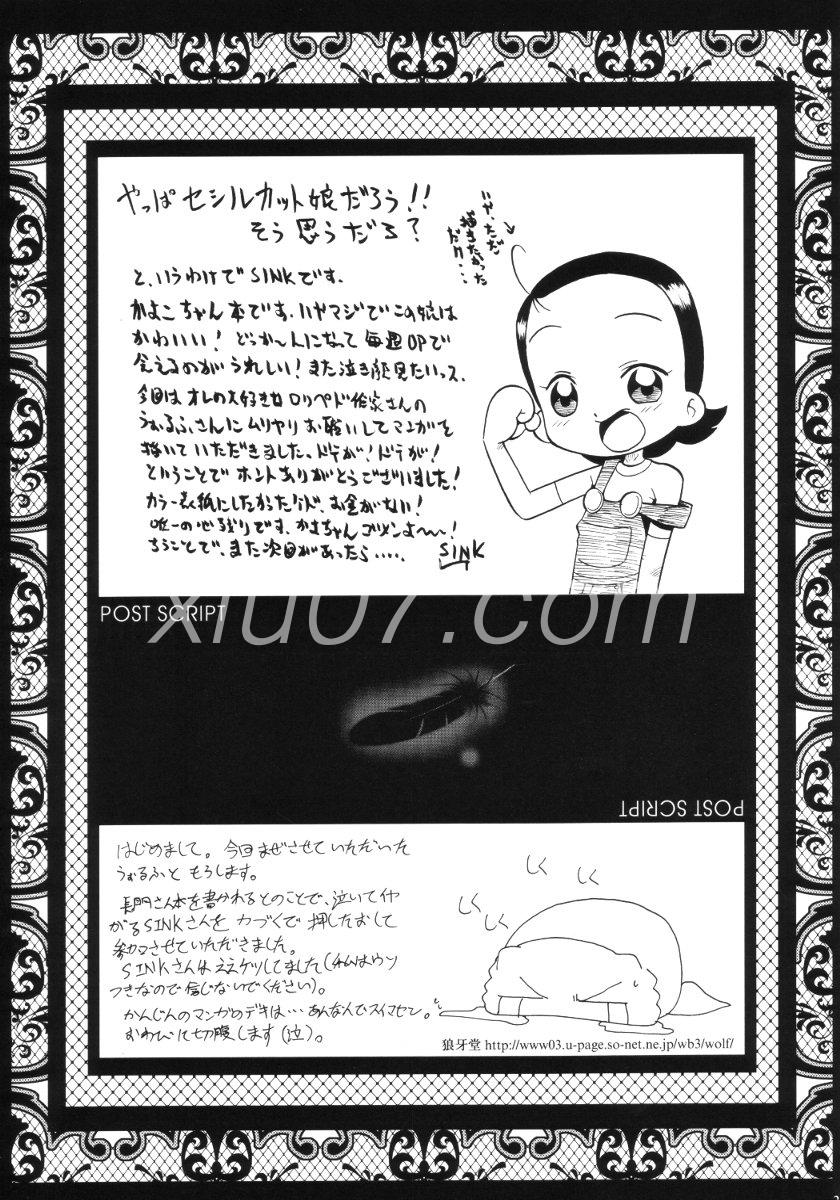 やっぱ セシルカット娘だろう!!
そう 思うだろ?
いや、ただ
描きたかった
だけ・・
と、いうわけで SINKです。
かよこちゃん本です。いやマジでこの娘は
かわいい! どっか〜んになって 毎週OPで
会えるのがうれしい! また泣き顔見たいっス。
今回は オレの大好きな ロリペド作家さんの
うぉるふさんに ムリヤリ お願いして マンガを
描いていただきました。ドテが! ドテが!
ということで ホントありがとうございました!
カラー表紙にしたかったケド、お金がない!
唯一の心残りです、かよちゃん ゴメンよ〜〜!
ちうことで、また次回があったら・・・・・
SINK
POST SCRIPT
xiu07.com
POST SCRIPT
はじめまして。今回まぜさせていただいた
うぉるふと もうします。
長門さん本を書かれるとのことで、泣いてイヤ
がるSINKさんを 力づくで 押したおして
参加させていただきました。
SINKさんは ええケツしてました(私はウソ
つきなので信じないでください)。
かんじんのマンガのデキは… あんなんでスイマセン。
おわびに切腹します(泣)。
しく
しく
しく
しく
狼牙堂 http://www03.u-page.so-net.ne.jp/wb3/wolf/